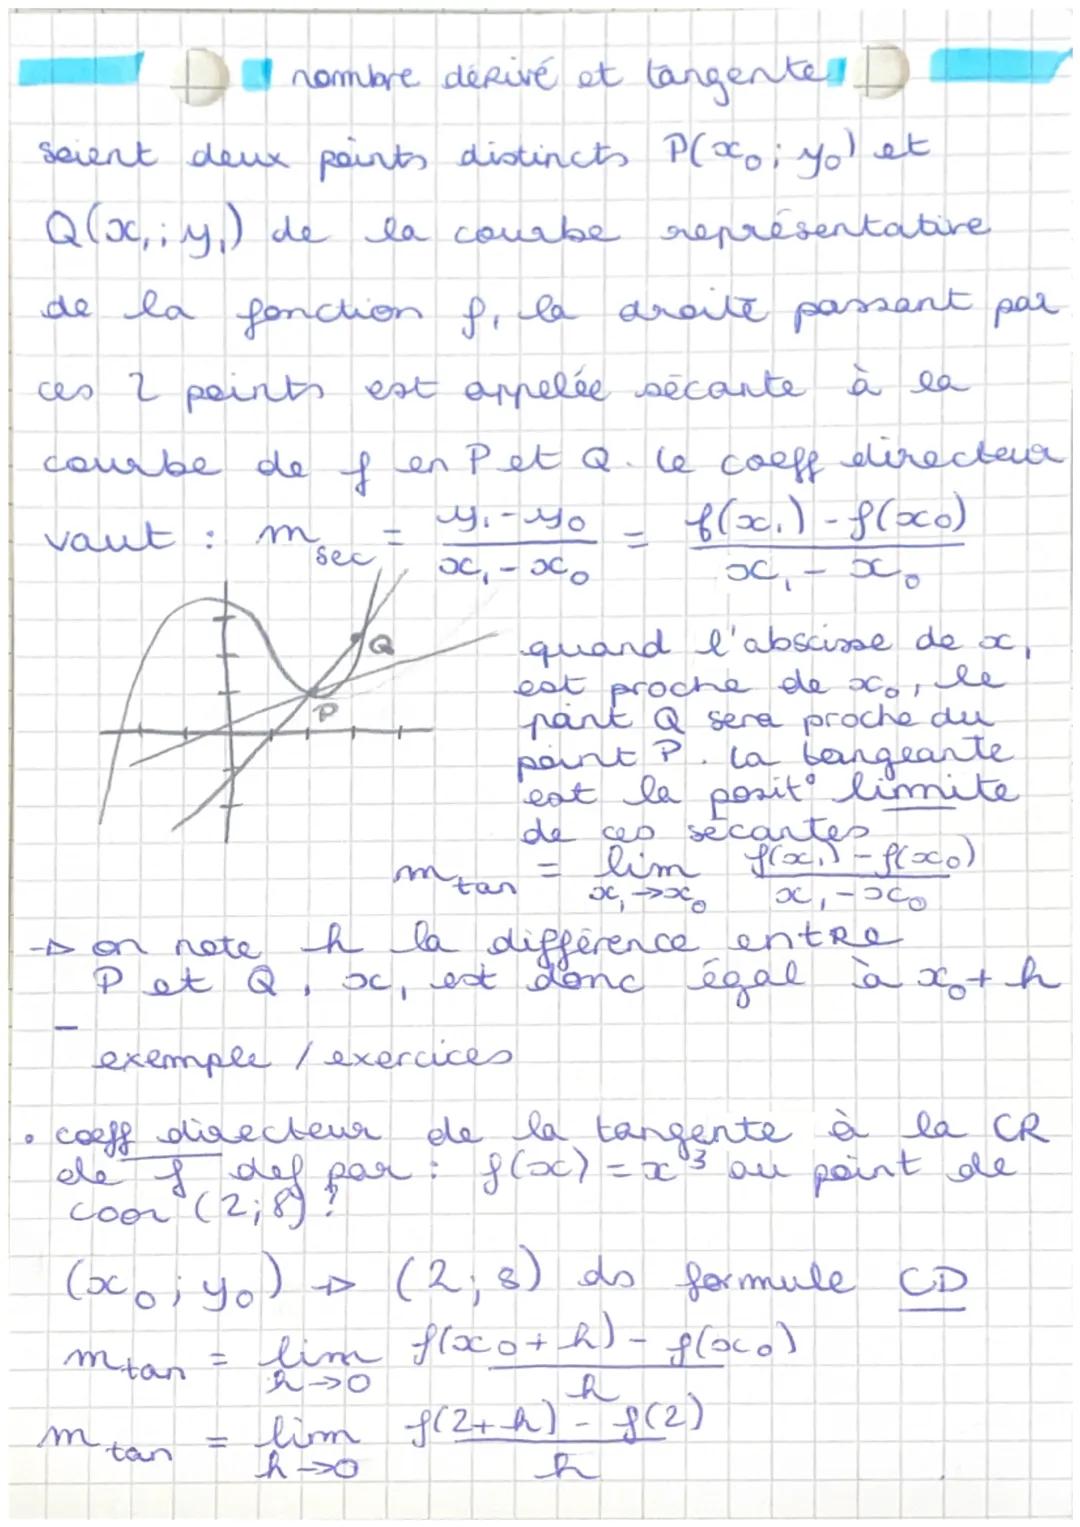 nombre dérivé et tangente
soient deux points distincts P(x₀; y₀) et
Q(x₁; y₁) de la courbe représentative
de la fonction f, la droite passant par
ces 2 points est appelée sécante à la
courbe de f en P et Q. le coeff directeur
vaut : m sec = y₁ - y₀ / x₁ - x₀ = f(x₁) - f(x₀) / x₁ - x₀
Q
P
quand l'abscisse de x₁
est proche de x₀, le
point Q sera proche du
point P. la tangeante
est la posit° limite
de ces sécantes
m tan = lim x₁→x₀ f(x₁) - f(x₀) / x₁ - x₀
→ on note h la différence entre
P et Q, x₁ est donc égal à x₀ + h
- exemple / exercices
• coeff directeur de la tangente à la CR
de f def par : f(x) = x³ au point de
coor (2;8) ?
(x₀; y₀) → (2; 8) ds formule CD
m tan = lim h→0 f(x₀ + h) - f(x₀) / h
m tan = lim h→0 f(2 + h) - f(2) / h